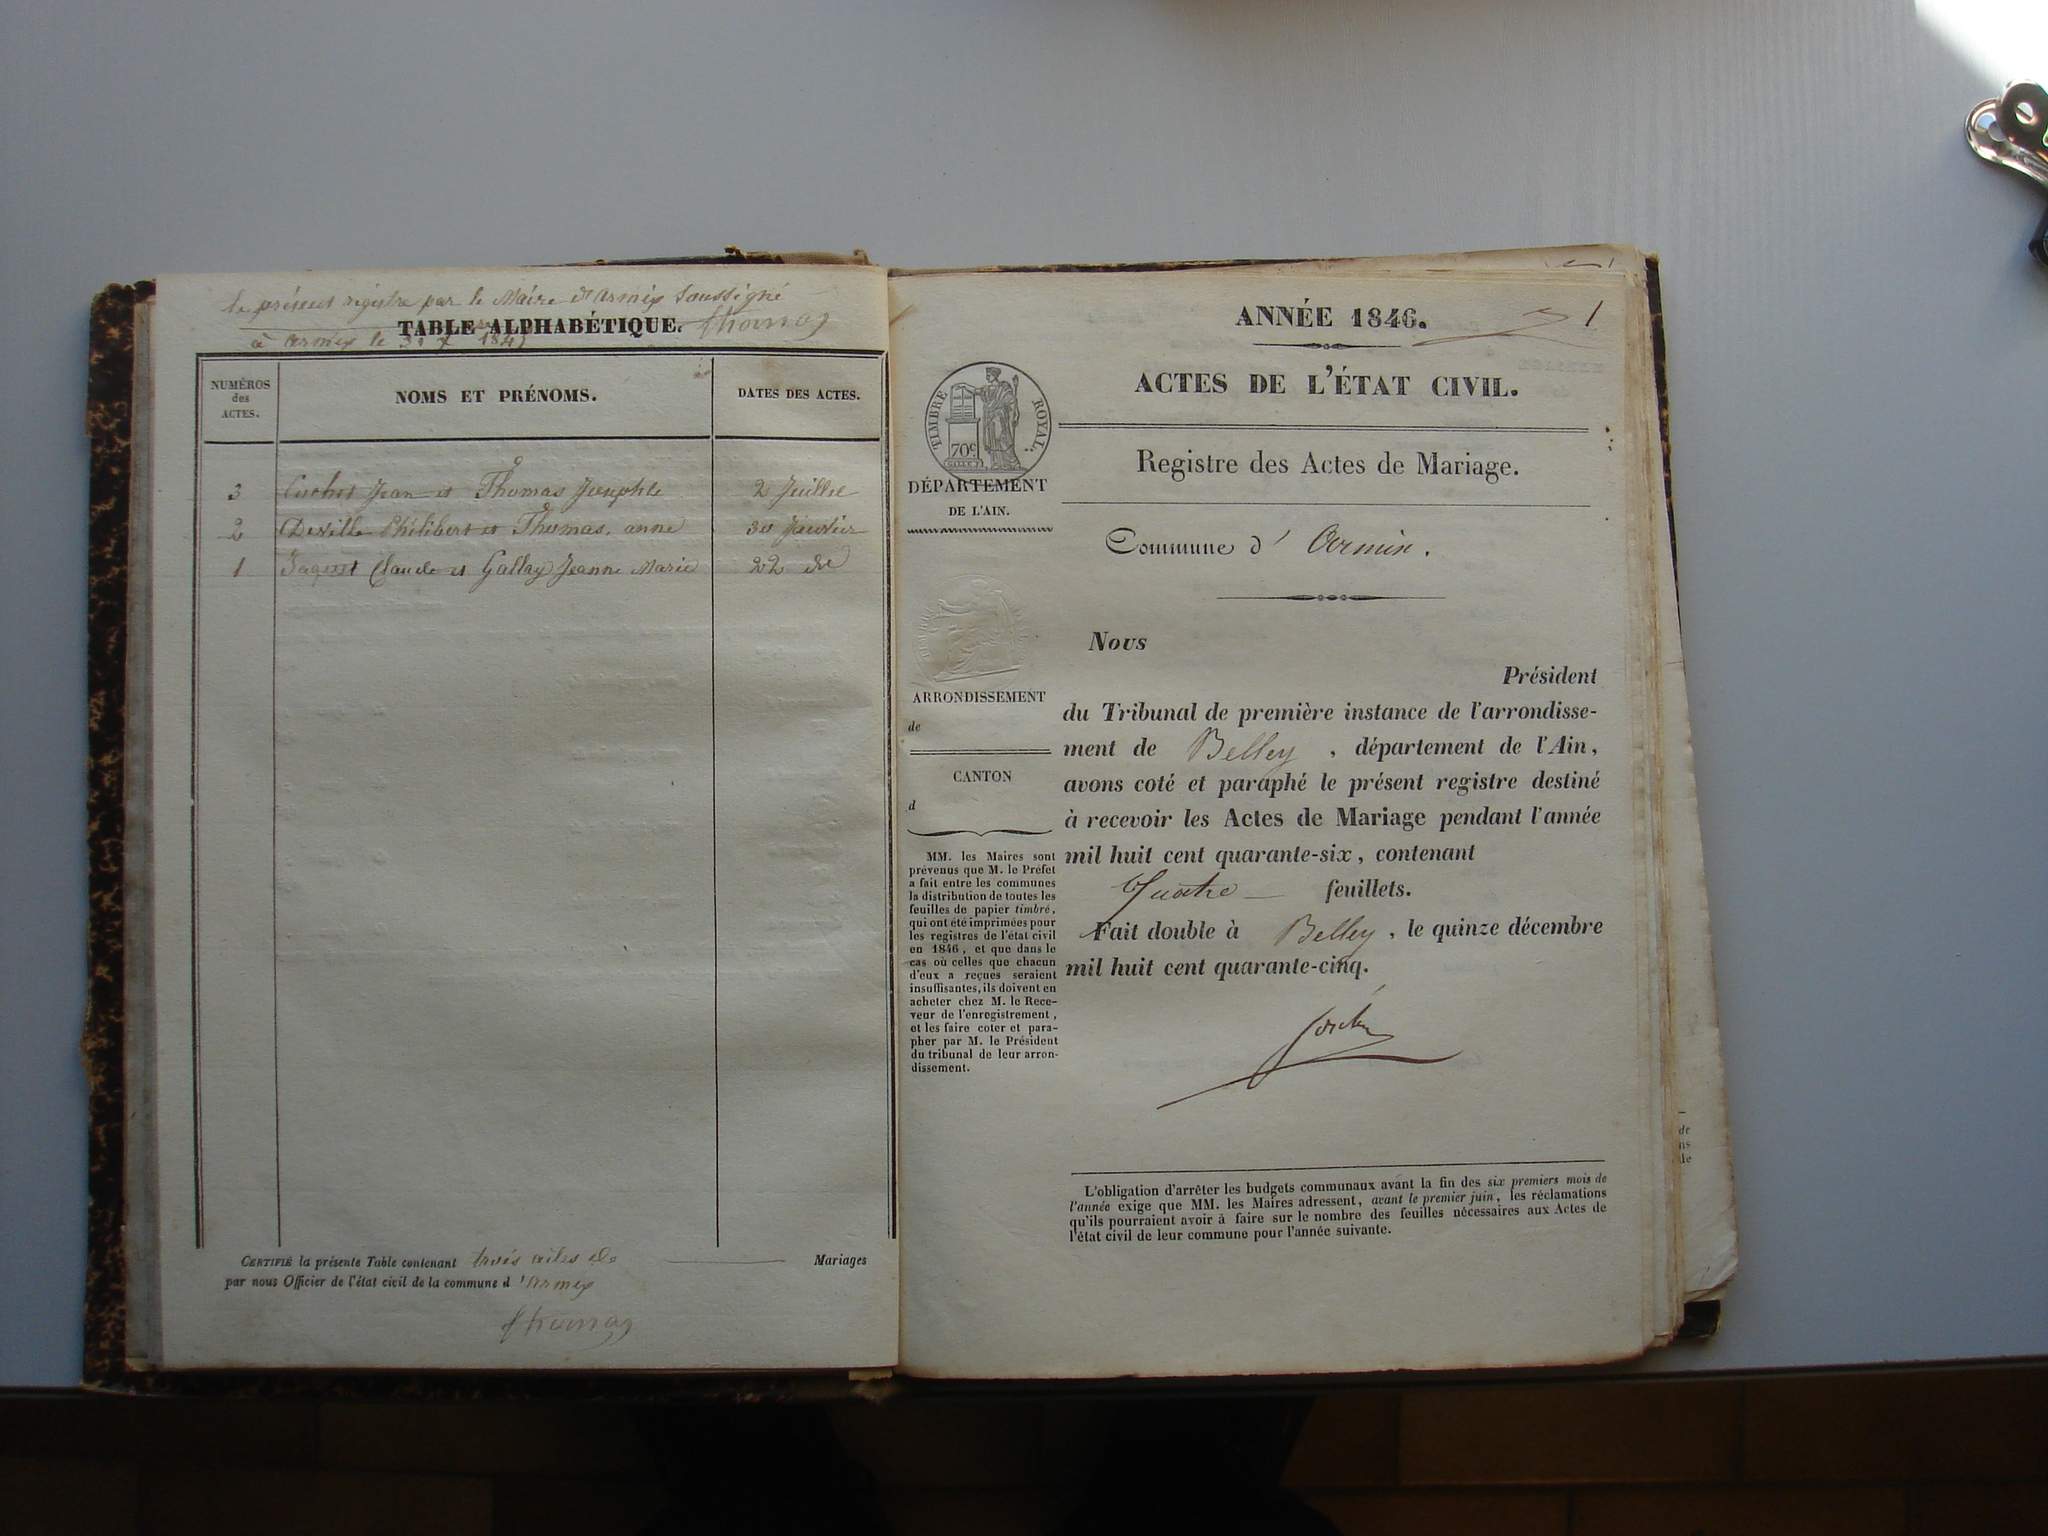 le présent régistre par le Maire d'armix Soussigné
TABLE ALPHABÉTIQUE. Thomas
à armix le 31
NUMÉROS des ACTES.
NOMS ET PRÉNOMS.
DATES DES ACTES.
3 Cuchet Jean et Thomas Josephte 2 Juillet
2 Deville Philibert et Thomas, anne 30 Janvier
1 Jaquet Claude et Gallay Jeanne Marie 22 do
CERTIFIÉ la présente Table contenant trois actes de Mariages
par nous Officier de l'état civil de la commune d 'armix
Thomas
1
ANNÉE 1846.
ACTES DE L'ÉTAT CIVIL.
Registre des Actes de Mariage.
TIMBRE ROYAL.
70c
DÉPARTEMENT
DE L'AIN.
Commune d' Armix.
ARRONDISSEMENT
de
CANTON
d
MM. les Maires sont
prévenus que M. le Préfet
a fait entre les communes
la distribution de toutes les
feuilles de papier timbré,
qui ont été imprimées pour
les registres de l'état civil
en 1846, et que dans le
cas où celles que chacun
d'eux a reçues seraient
insuffisantes, ils doivent en
acheter chez M. le Rece-
veur de l'enregistrement,
et les faire coter et para-
pher par M. le Président
du tribunal de leur arron-
dissement.
Nous
Président
du Tribunal de première instance de l'arrondisse-
ment de Belley, département de l'Ain,
avons coté et paraphé le présent registre destiné
à recevoir les Actes de Mariage pendant l'année
mil huit cent quarante-six, contenant
Quatre feuillets.
Fait double à Belley, le quinze décembre
mil huit cent quarante-cinq.
L'obligation d'arrêter les budgets communaux avant la fin des six premiers mois de
l'année exige que MM. les Maires adressent, avant le premier juin, les réclamations
qu'ils pourraient avoir à faire sur le nombre des feuilles nécessaires aux Actes de
l'état civil de leur commune pour l'année suivante.